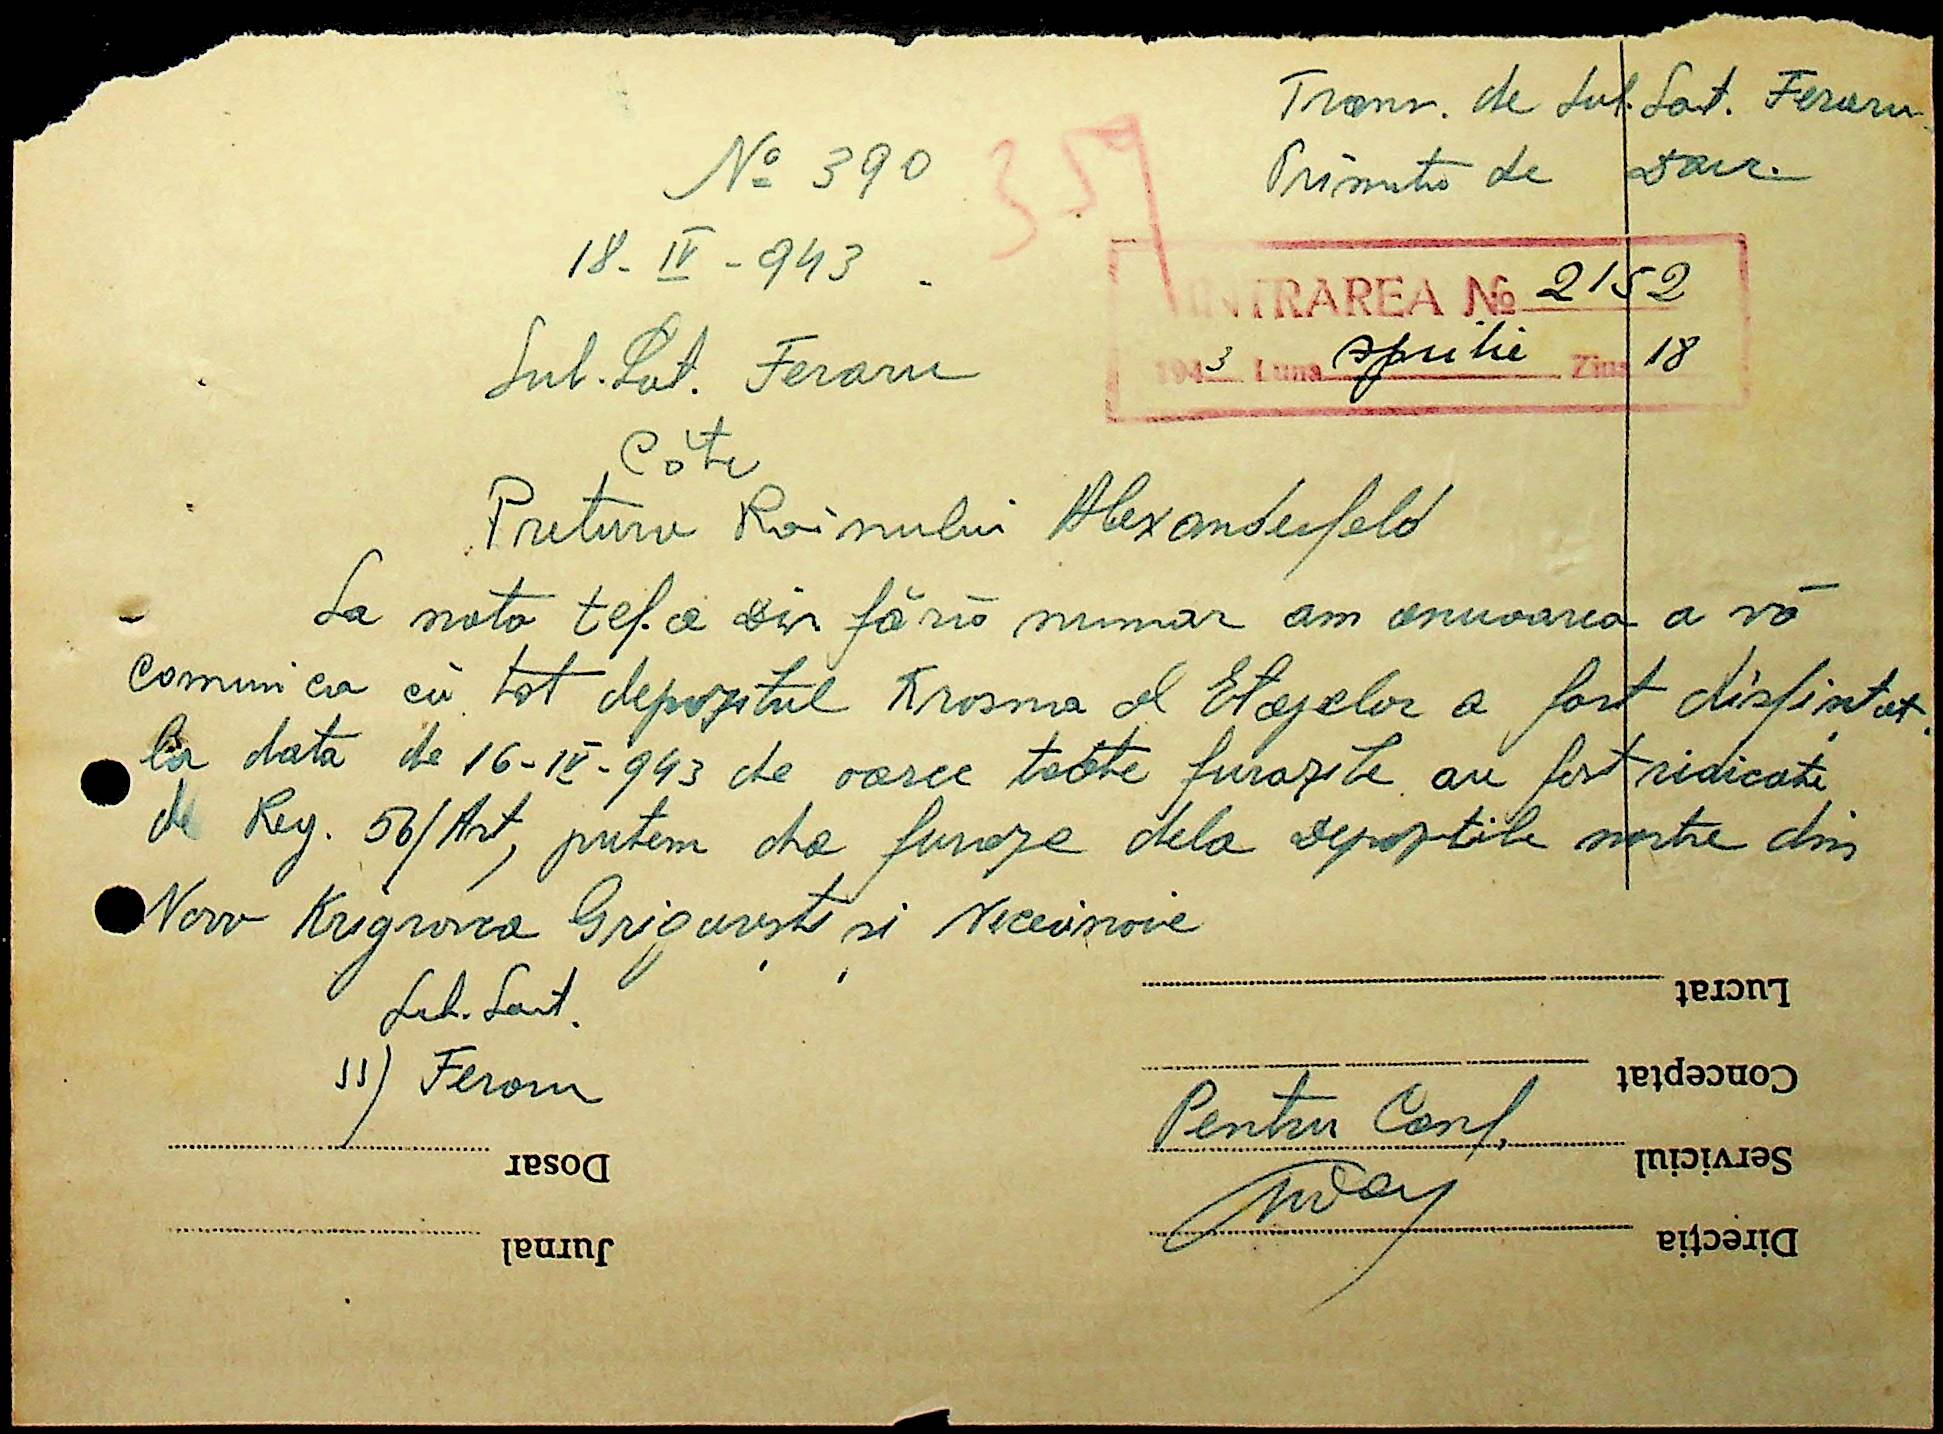 Transm. de Sub. Lot. Feraru
Primita de
No 390
357
18-IV-943.
INTRAREA No 2152
1943 Luna Aprilie Ziua 18
Sub. Lot. Feraru
Către
Pretura Rainului Alexanderfeld
La nota tel. a Dvs. fără numar am onuoarea a vă
comunica că tot depozitul Krosma al Etapelor a fost disfintat
la data de 16-IV-943 de oarece toate furazile au fost ridicate
de Reg. 56/Art, putem da furaze dela Depozitile nostre din
Novo Krigrovca Grigoresti si
Sub. Lot.
ss) Feraru
Lucrat
Conceptat
Pentru Conf.
Serviciul
Direcția
Dosar
Jurnal